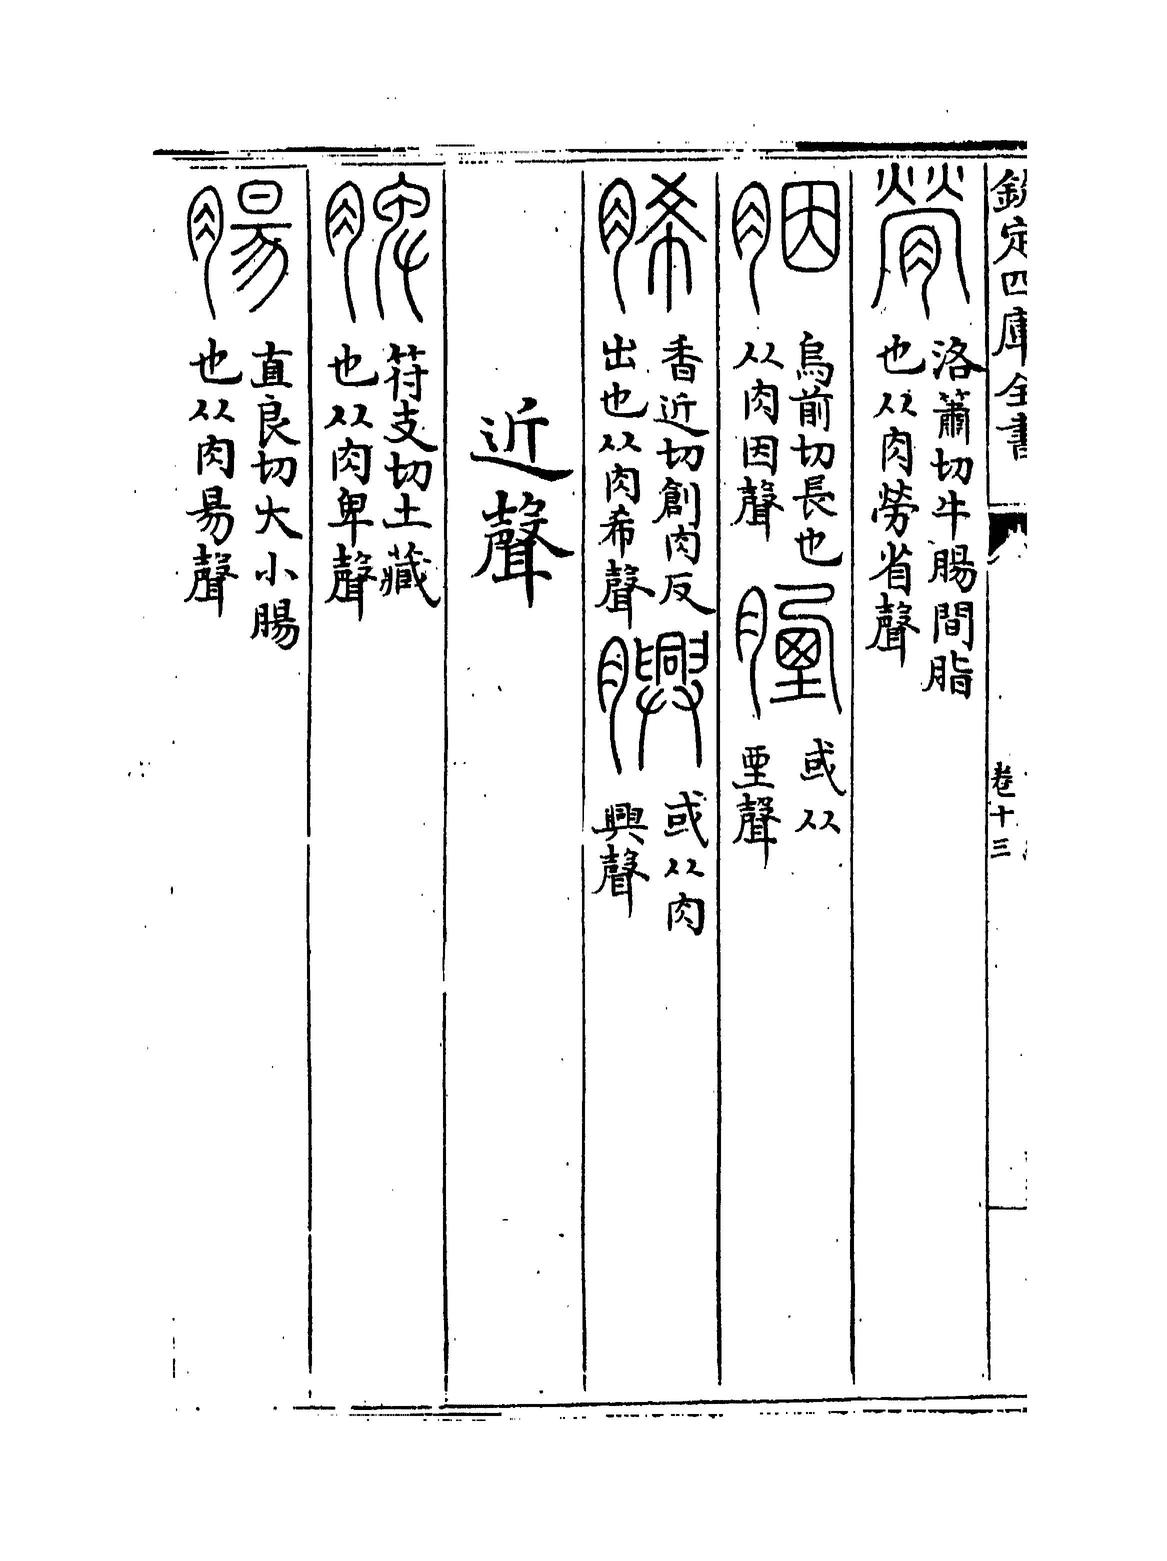 欽定四庫全書
卷十三
膋洛簫切牛腸間脂也从肉勞省聲
胭烏前切長也从肉因聲𦞅或从垔聲
脪香近切創肉反出也从肉希聲𦢎或从肉興聲
近聲
脾符支切土藏也从肉卑聲
腸直良切大小腸也从肉昜聲